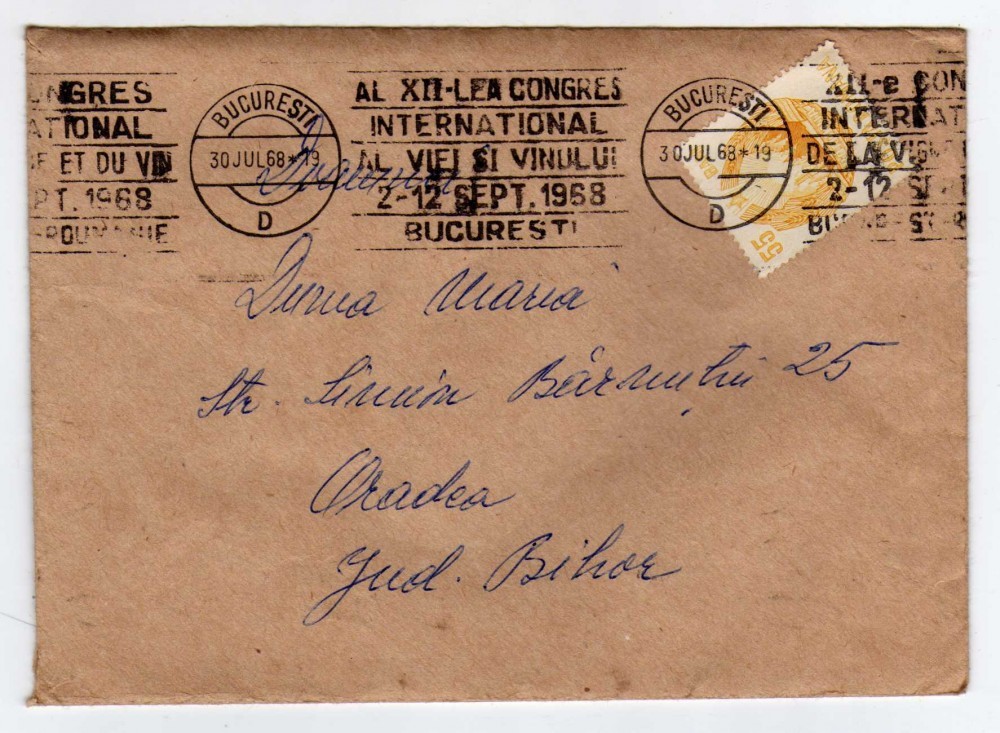 NGRES
ATIONAL
E ET DU VIN
PT. 1968
ROUMANIE
BUCURESTI
30 JUL 68 * 19
D
AL XII-LEA CONGRES
INTERNATIONAL
AL VIEI SI VINULUI
2-12 SEPT. 1968
BUCURESTI
BUCURESTI
30 JUL 68 * 19
D
XII-e CON
INTERNAT
DE LA VIGNE
2-12 SEPT
55
Duma Maria
Str. Simion Bărnuțiu 25
Oradea
Jud. Bihor